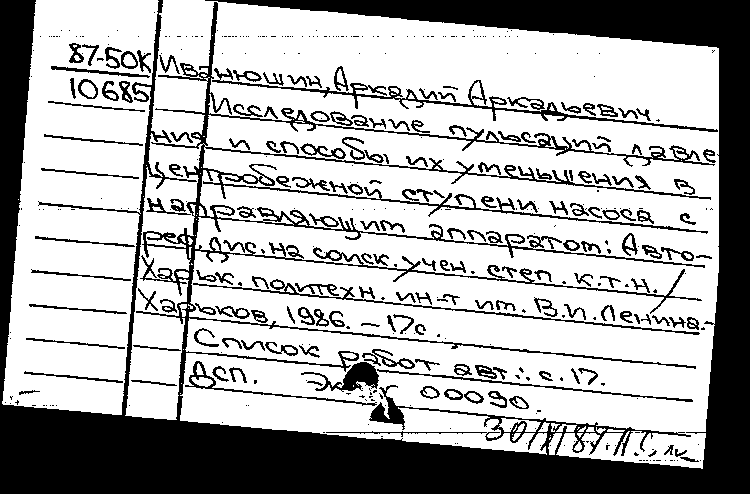 87-50К Иванюшин, Аркадий Аркадьевич.
10685 Исследование пульсаций давле
ния и способы их уменьшения в
центробежной ступени насоса с
направляющим аппаратом: Авто-
реф. дис. на соиск. учен. степ. к.т.н. /
Харьк. политехн. ин-т им. В.И. Ленина.-
Харьков, 1986. - 17с.
Список работ авт.: с. 17.
Дсп. 00090.
30/XI 87.